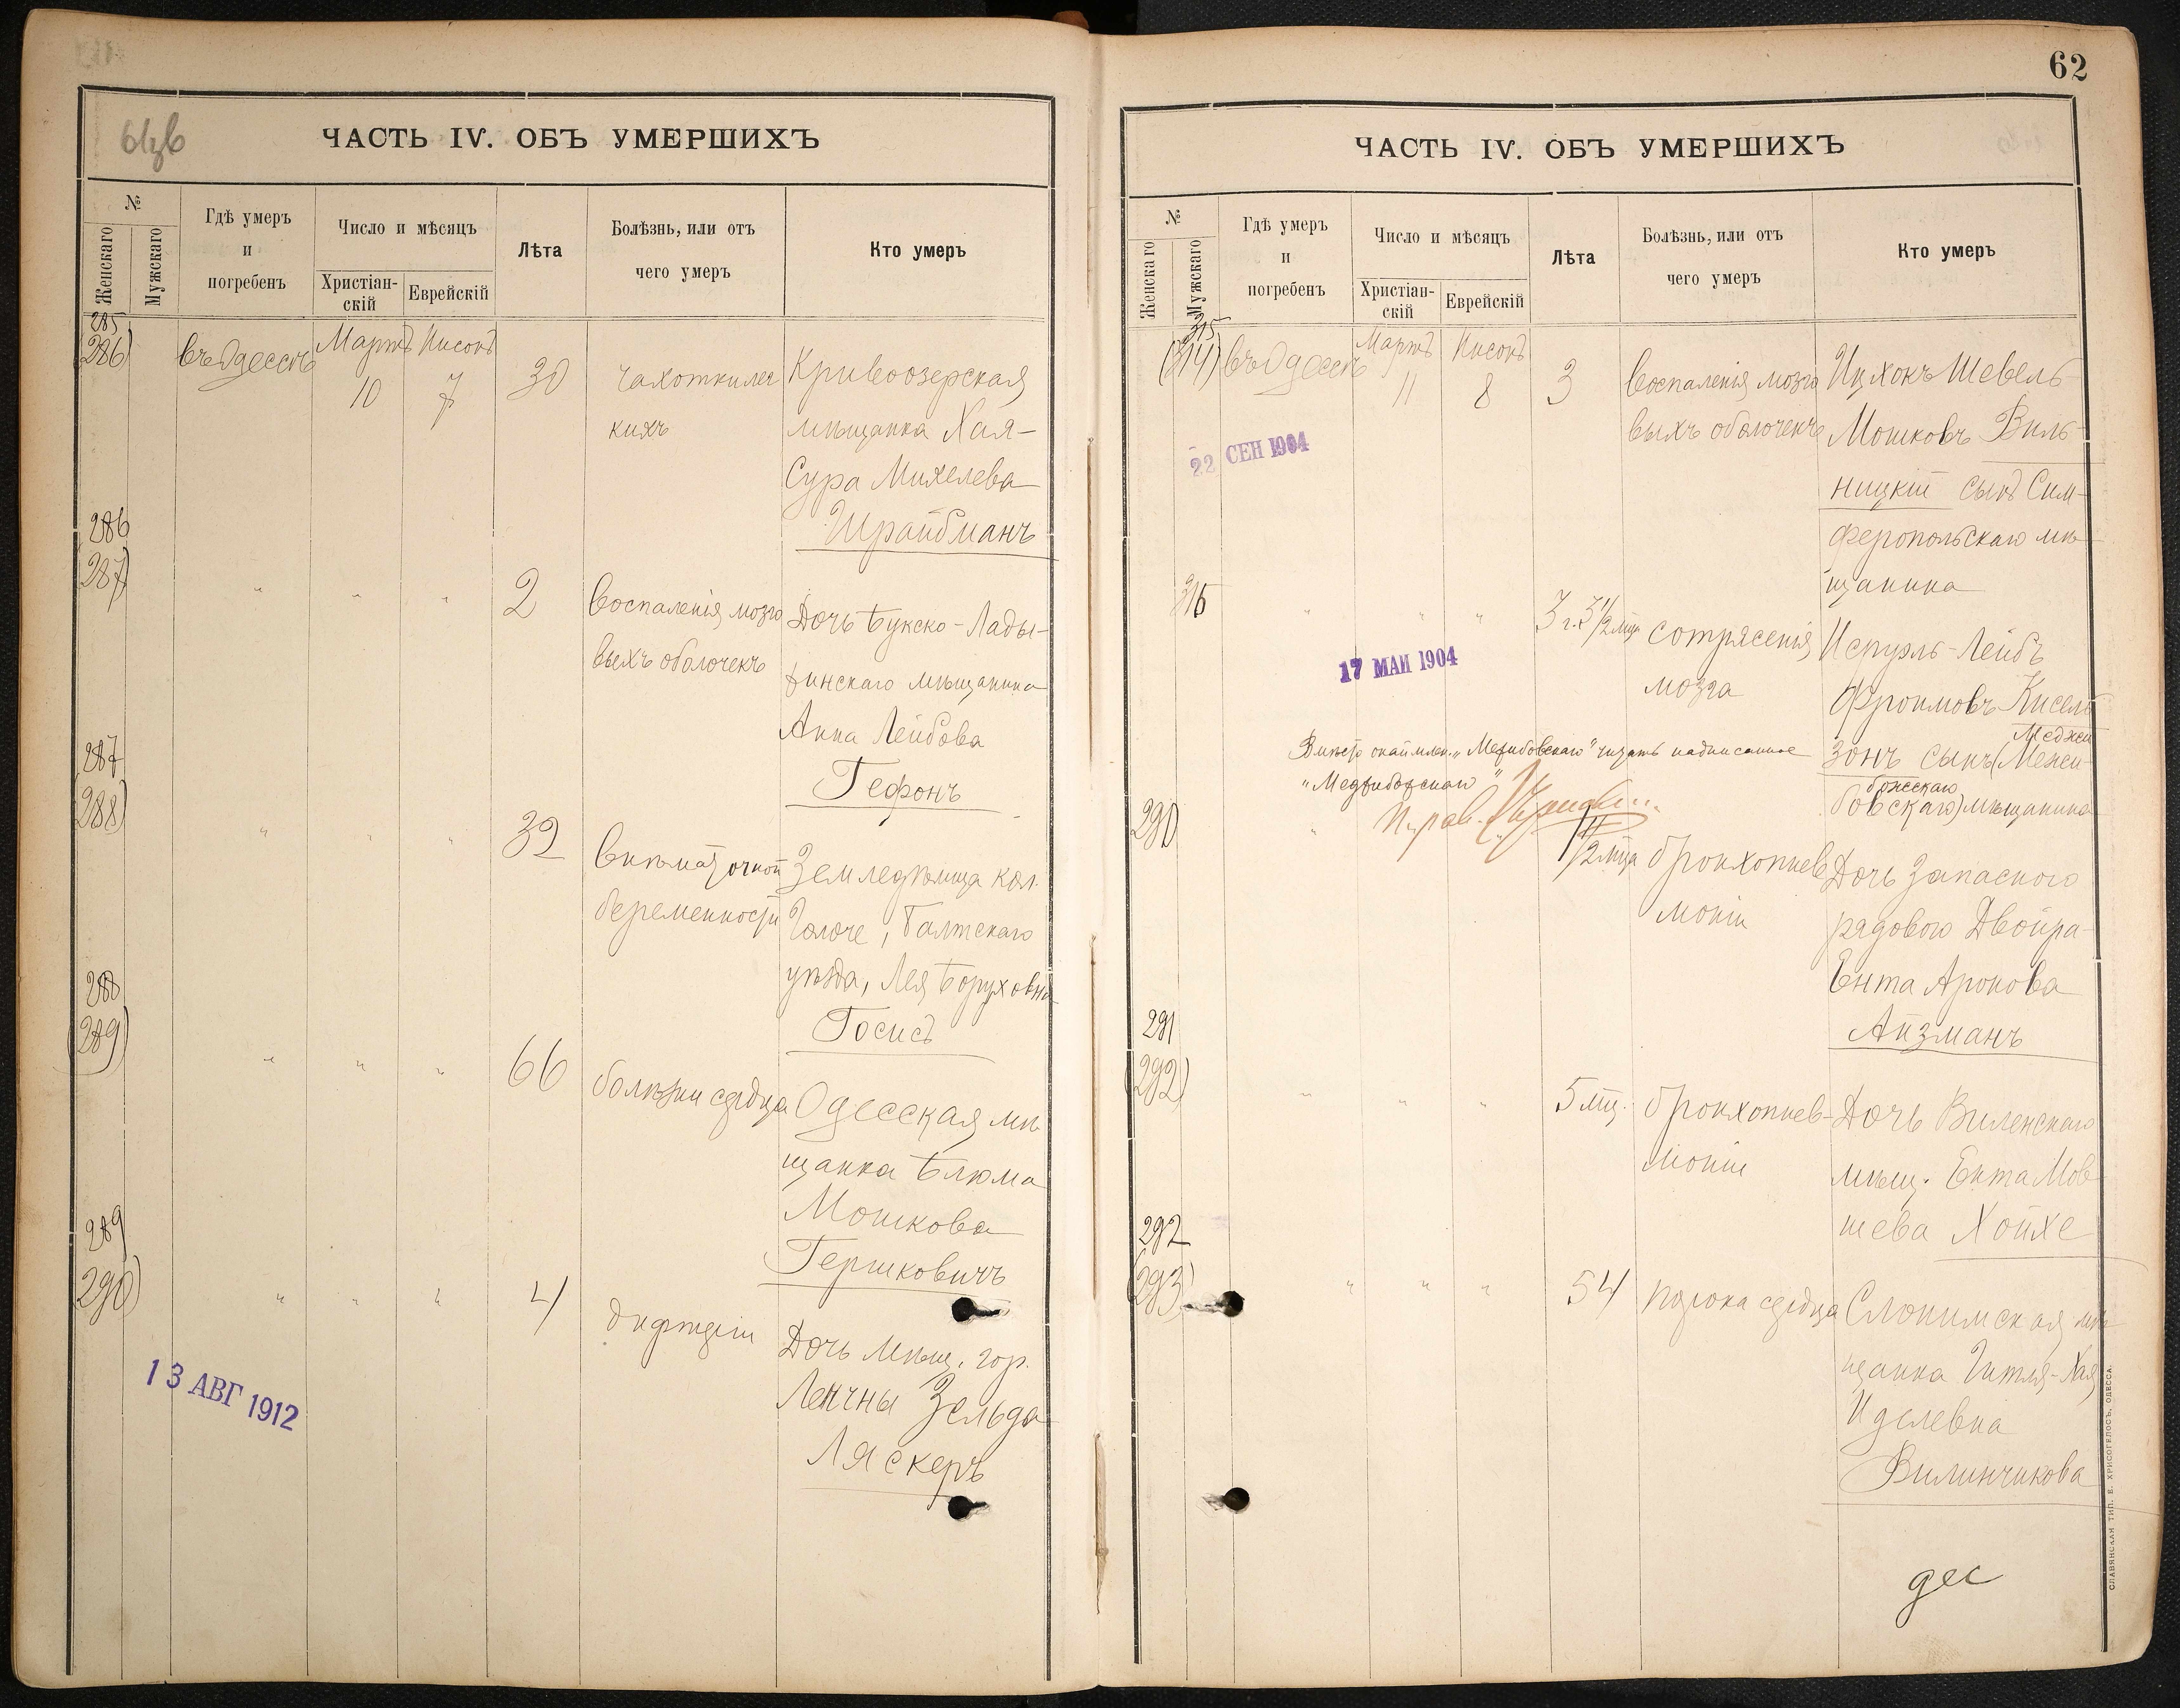 61зв
ЧАСТЬ IV. ОБЪ УМЕРШИХЪ
№
Женскаго
Мужскаго
Гдѣ умеръ
и
погребенъ
Число и мѣсяцъ
Христіан-
скій
Еврейскій
Лѣта
Болѣзнь, или отъ
чего умеръ
Кто умеръ
285
(286)
въ Одессѣ
Мартъ
10
Нисонъ
7
30
чахотки лег
кихъ
Кривоозерская
мѣщанка Хая-
Сура Михелева
Шрайбманъ
286
287)
" " "
2
воспаленія мозго
выхъ оболочекъ
Дочь Букско-Лады-
жинскаго мѣщанина
Анна Лейбова
Гефонъ
287
288)
" " "
32
внѣматочной
беременности
Земледѣлица кол.
Голоче, Балтскаго
уѣзда, Лея Боруховна
Госисъ
288
(289)
" " "
66
болѣзни сердца
Одесская мѣ
щанка Блюма
Мошкова
Гершковичъ
289
290)
" " "
4
дифтеріи
Дочь мѣщ. гор.
Ленчны Зельда
Ляскеръ
13 АВГ 1912
62
ЧАСТЬ IV. ОБЪ УМЕРШИХЪ
№
Женскаго
Мужскаго
Гдѣ умеръ
и
погребенъ
Число и мѣсяцъ
Христіан-
скій
Еврейскій
Лѣта
Болѣзнь, или отъ
чего умеръ
Кто умеръ
315
(314)
въ Одессѣ
Мартъ
11
Нисонъ
8
3
воспаленія мозго
выхъ оболочекъ
Ицхокъ Шевель
Мошковъ Виль-
ницкій сынъ Сим-
феропольскаго мѣ
щанина
22 СЕН 1904
316
" " "
3 г. 3 1/2 мца
сотрясенія
мозга
Исруэль-Лейбъ
Фроимовъ Кисель
Меджи
зонъ сынъ (Межи
божскаго
бовскаго) мѣщанина
17 МАИ 1904
Вмѣсто окаймлен. "Межибовскаго" читать надписанное
"Меджибожскаго"
290
"
1 1/2 мца
бронхопнев
моніи
Дочь запаснаго
рядового Двойра-
Ента Аронова
Айзманъ
291
(292)
" " "
5 мц.
бронхопнев-
моніи
Дочь Виленскаго
мѣщ. Ента Мов
шева Хойхе
292
(293)
" " "
54
порока сердца
Слонимская мѣ
щанка Гитля-Хая
Иделевна
Вилинчикова
СЛАВЯНСКАЯ ТИП. Е. ХРИСОГЕЛОСЪ, ОДЕССА.